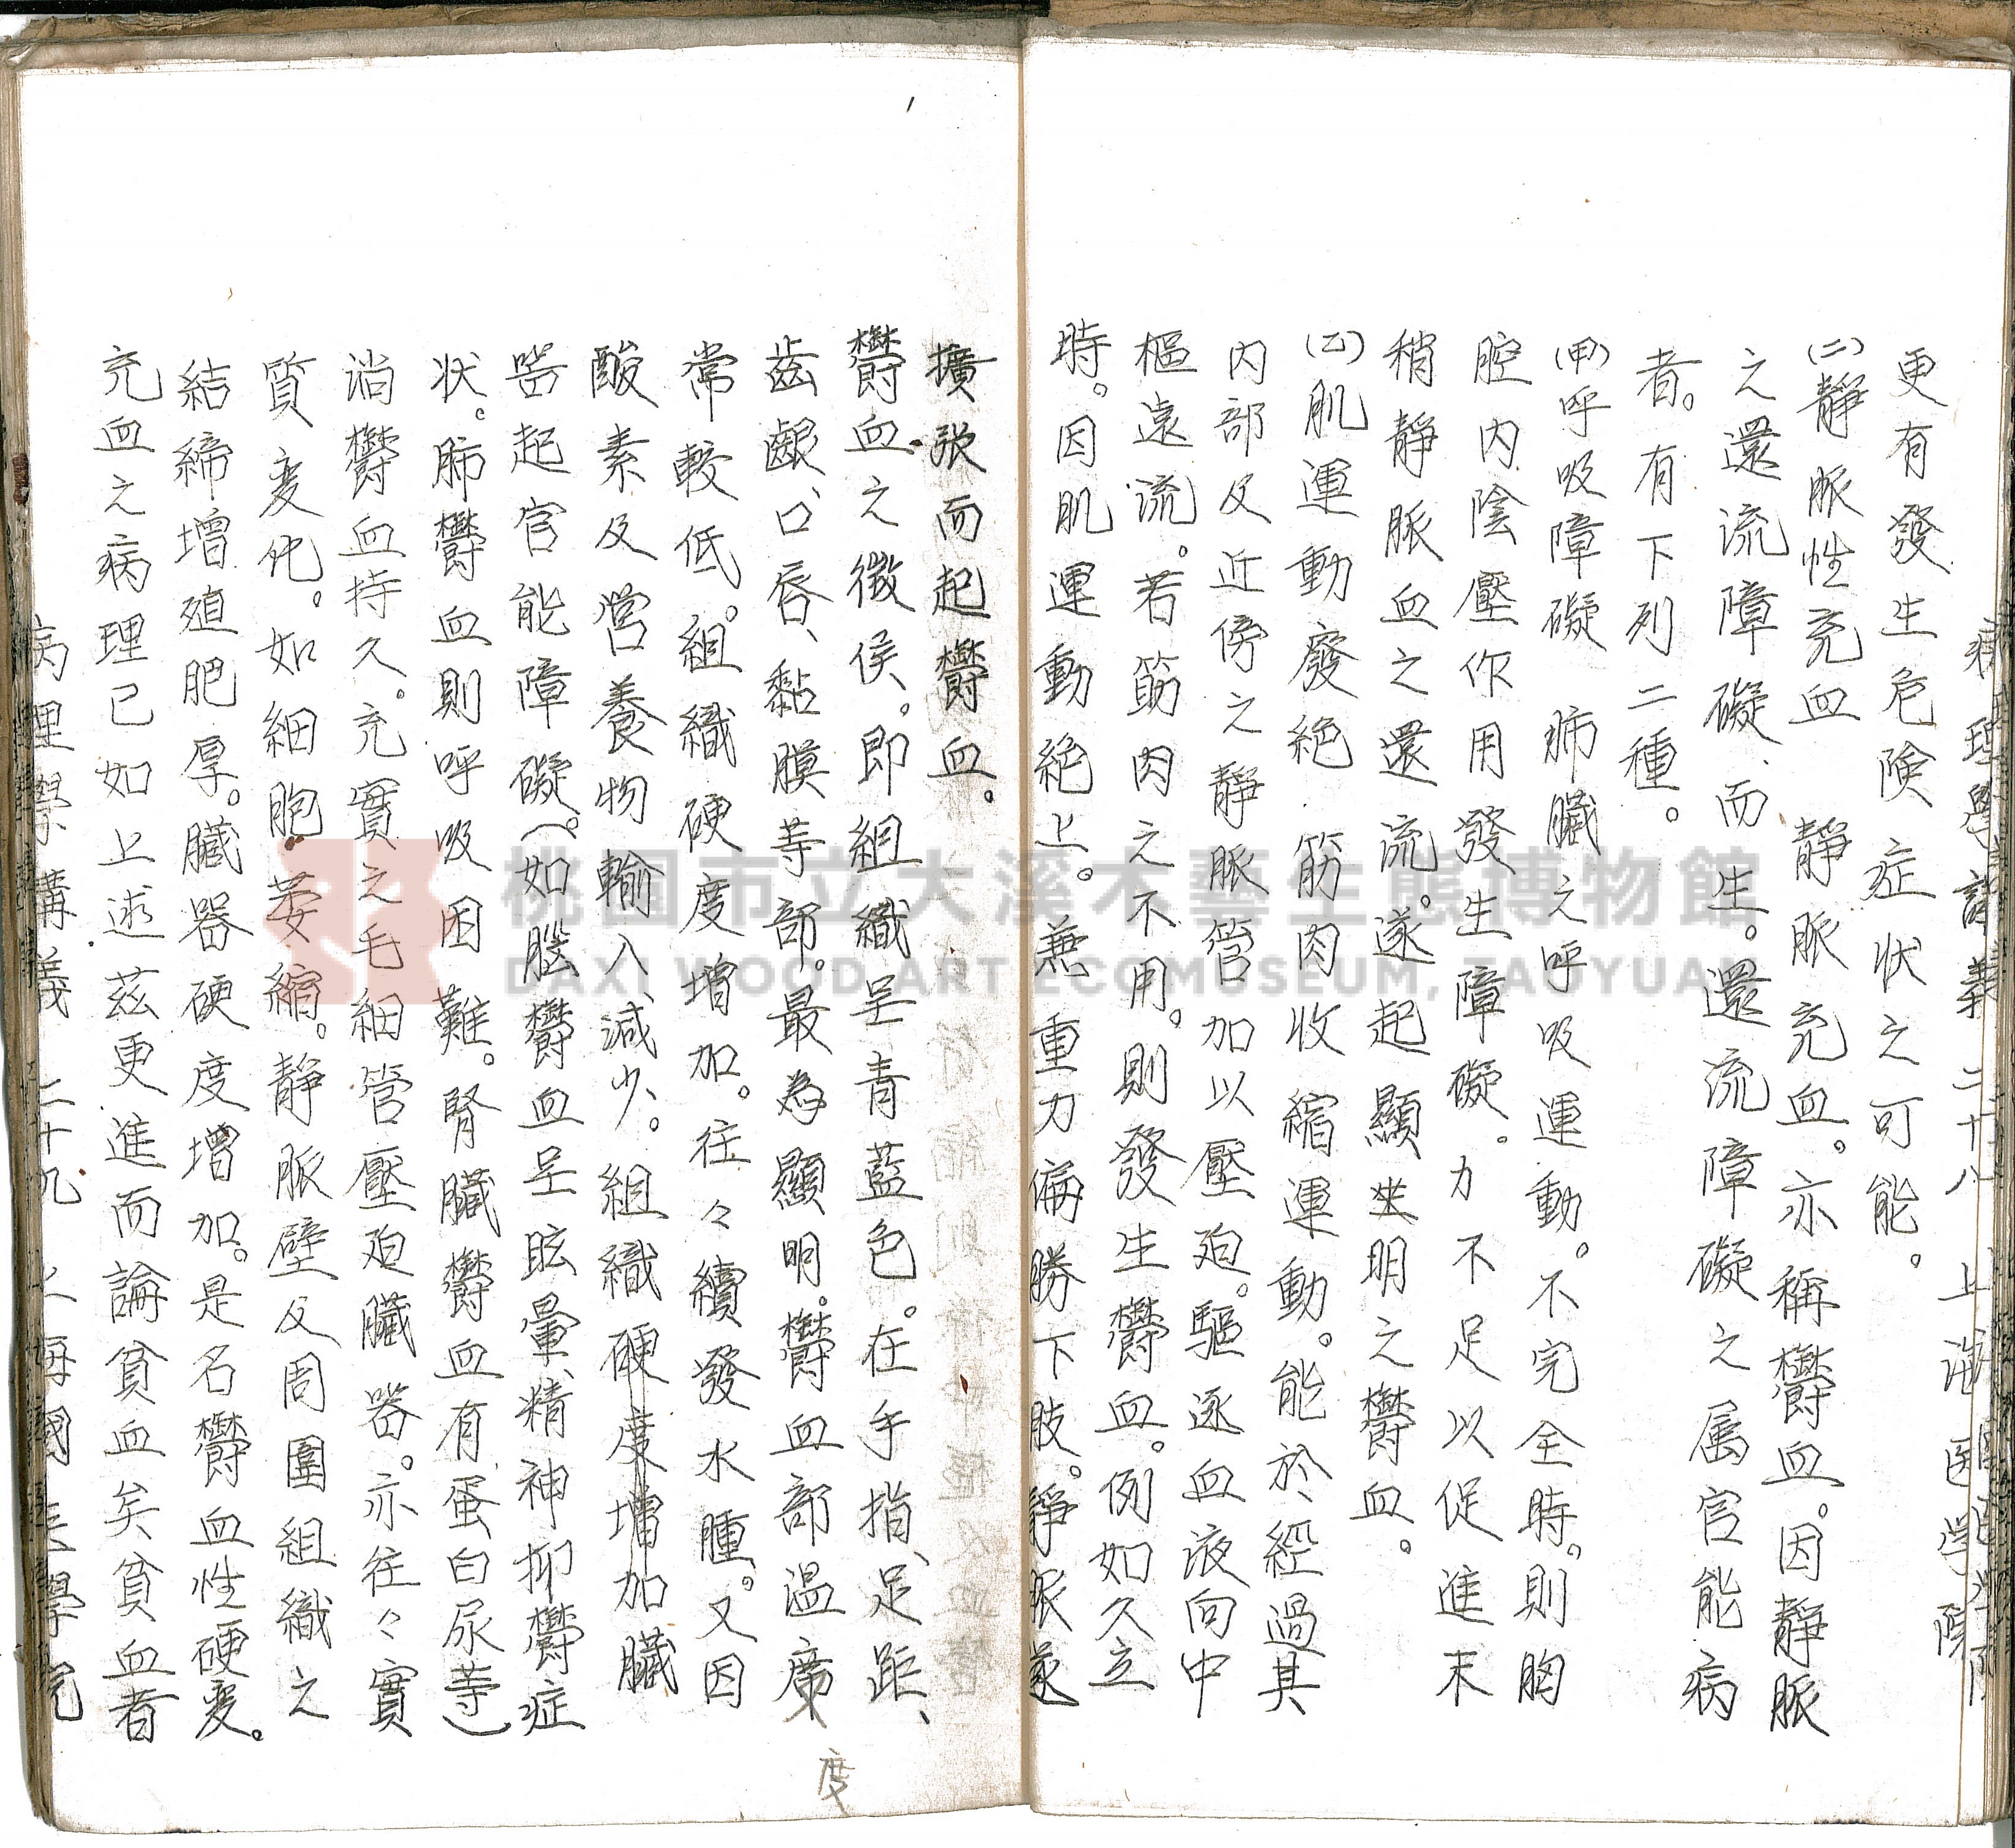 病理學講義 二十八 上海医学院
更有發生危険症状之可能。
(二)靜脈性充血 靜脈充血。亦稱欝血。因靜脈
之還流障礙而生。還流障礙之属官能病
者。有下列二種。
(甲)呼吸障礙 肺臓之呼吸運動。不完全時。則胸
腔内陰壓作用發生障礙。力不足以促進末
稍靜脈血之還流。遂起顯出明之欝血。
(乙)肌運動廢絶 筋肉收縮運動。能於經過其
内部及近傍之靜脈管加以壓廹。驅逐血液向中
樞遠流。若筋肉之不用。則發生欝血。例如久立
時。因肌運動絶止。兼重力偏勝下肢。靜脈遂
擴張而起欝血。
欝血之徵侯。即組織呈青藍色。在手指、足距、
齒齦、口唇、黏膜等部。最為顯明。欝血部温度
常較低。組織硬度増加。往々續發水腫。又因
酸素及営養物輸入减少。組織硬度増加臓
噐起官能障礙。(如腦欝血呈眩暈、精神抑欝症
状。肺欝血則呼吸困難。腎臓欝血有蛋白尿等)
淌欝血持久。充實之毛細管壓廹臓器。亦往々實
質変化。如細胞萎縮。靜脈壁及周圍組織之
結締增殖肥厚。臓器硬度增加。是名欝血性硬変。
充血之病理已如上述茲更進而論貧血矣貧血者
病理學講義 二十九 上海國医學院
度
桃園市立大溪木藝生態博物館
DAXI WOOD ART ECOMUSEUM, TAOYUAN